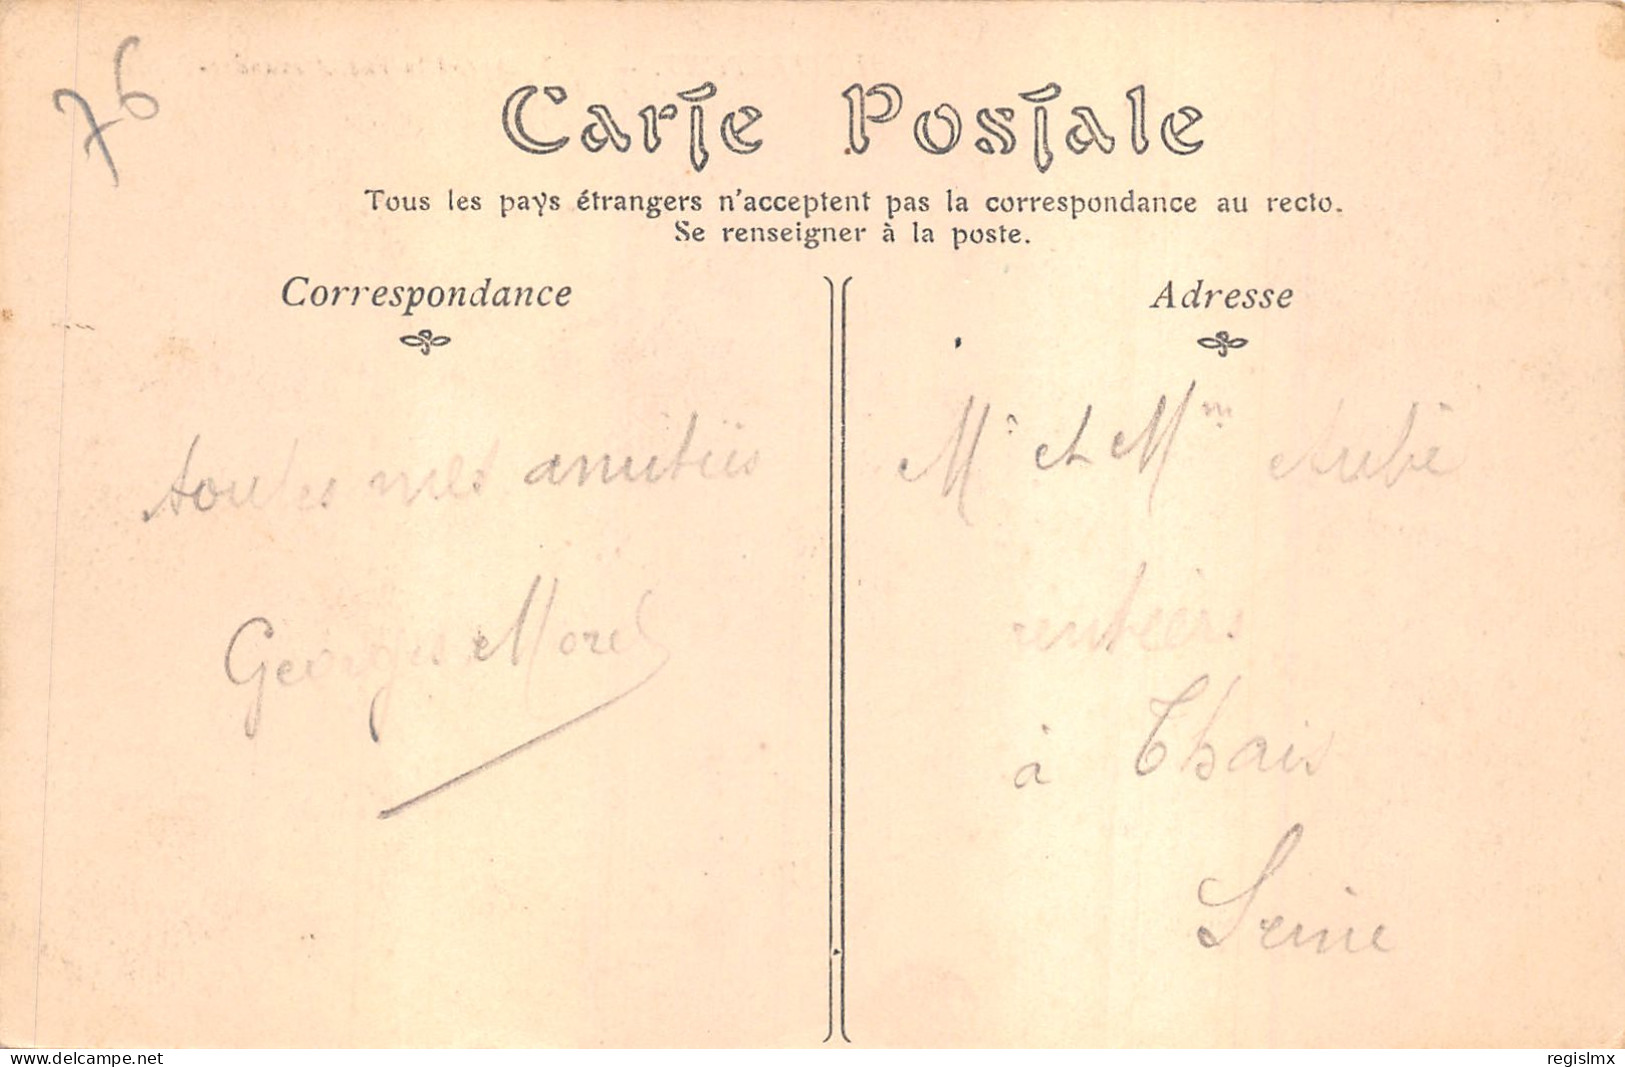 76
Carte Postale
Tous les pays étrangers n'acceptent pas la correspondance au recto.
Se renseigner à la poste.
Correspondance
Adresse
toutes mes amitiés
Georges Morel
Mr et Mm Aubé
rentiers
à Thais
Seine
www.delcampe.net
regislmx